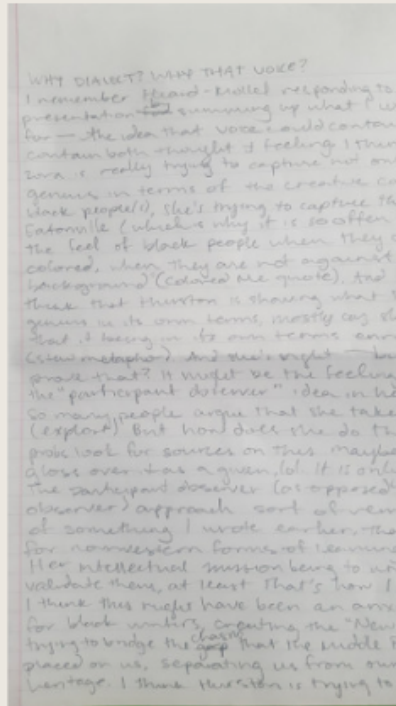 WHY DIALECT? WHY THAT VOICE?
I remember Heard-Mollel responding to
presentation summing up what I w
for — the idea that voice could contain
contain both thought & feeling. I then
Zora is really trying to capture not on
genius in terms of the creative ca
black people(s), she's trying to capture th
Eatonville (which is why it is so often
the feel of black people when they
colored, when they are not against
background (Colored Me quote). And
think that Hurston is showing what
genius in its own terms, mostly
that it being in its own terms
metaphor) And she's right — bu
prove that? It might be the feeling
the "participant observer" idea in he
so many people argue that she take
(exploit) But how does she do th
probs look for sources on this maybe
gloss over it as a given, lol It is only
The participant observer (as opposed
observer) approach sort of rem
of something I wrote earlier, the
for nonwestern forms of learning
Her intellectual mission being to
validate them, at least that's how I
I think this might have been an
for black writers, creating the "New
trying to bridge the chasm that the Middle P
placed on us, separating us from our
heritage. I think Hurston is trying to